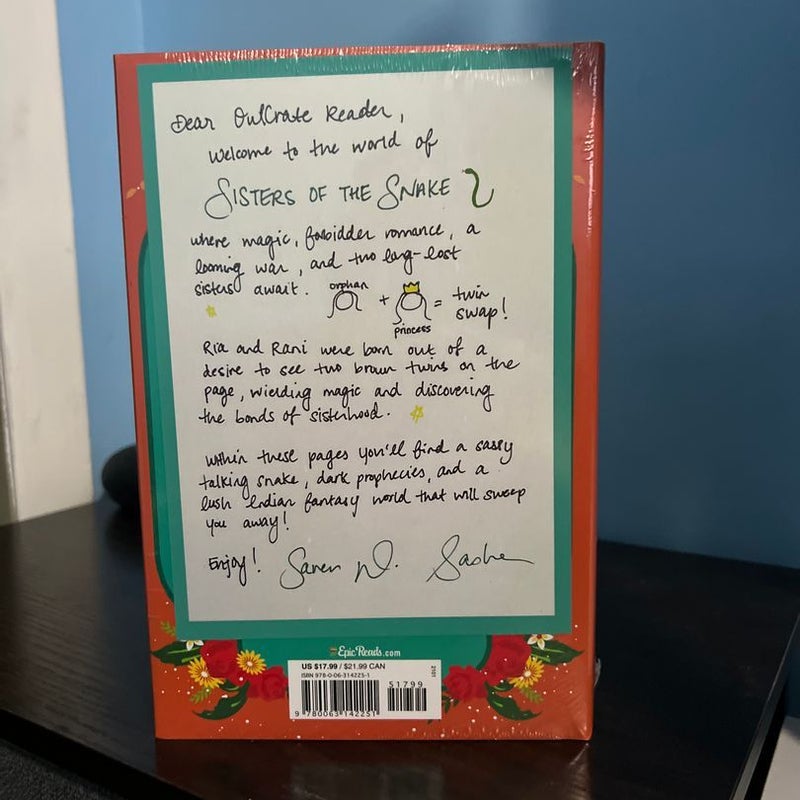 Dear OwlCrate Reader,
Welcome to the world of
SISTERS OF THE SNAKE
where magic, forbidden romance, a
looming war, and two long-lost
sisters await.
orphan + princess = twin swap!
Ria and Rani were born out of a
desire to see two brown twins on the
page, wielding magic and discovering
the bonds of sisterhood.
Within these pages you'll find a sassy
talking snake, dark prophecies, and a
lush Indian fantasy world that will sweep
you away!
Enjoy!
EpicReads.com
US $17.99 / $21.99 CAN
ISBN 978-0-06-314225-1
51799
9 780063 142251
2101